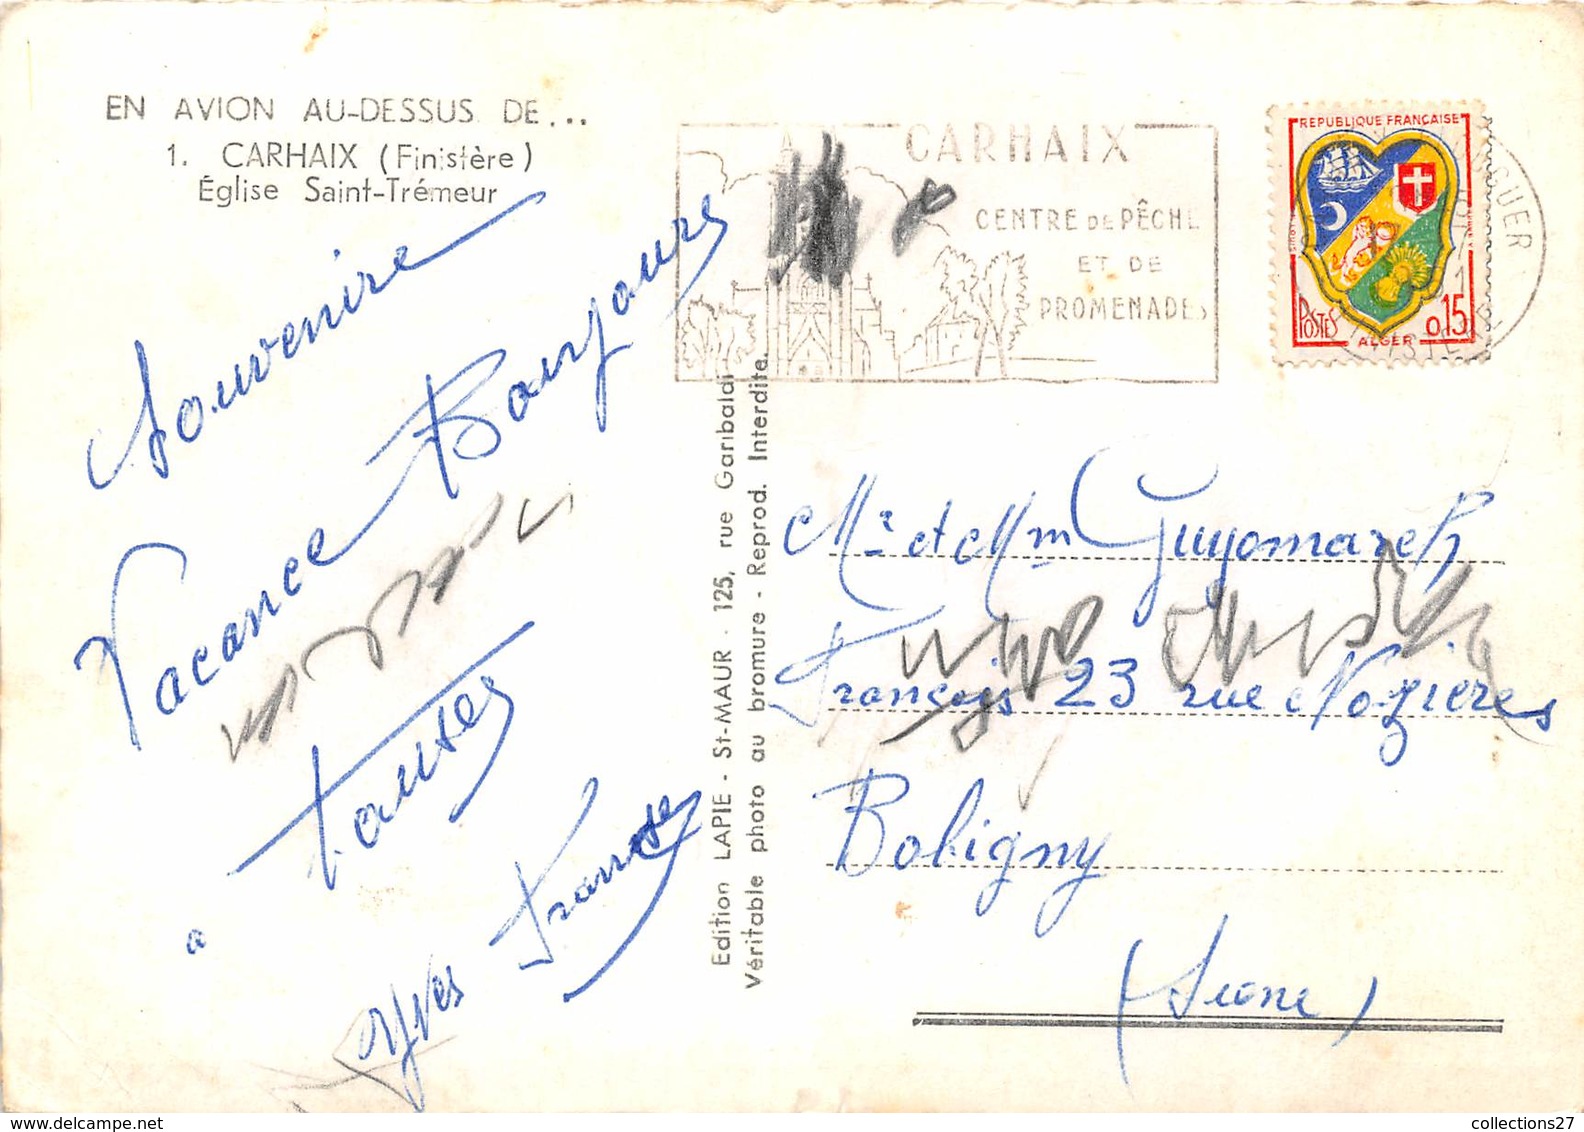 EN AVION AU-DESSUS DE...
1. CARHAIX (Finistère)
Église Saint-Trémeur
Souvenire
Vacance Bonjours
a toutes
Yves Franse
Edition LAPIE - St-MAUR - 125, rue Garibaldi
Véritable photo au bromure - Reprod. Interdite.
CARHAIX
CENTRE DE PÊCHE
ET DE
PROMENADES
REPUBLIQUE FRANÇAISE
POSTES 0,15
ALGER
Mr et Mm Guyomarch
François 23 rue Nozières
Bobigny
(Seone)
collections27